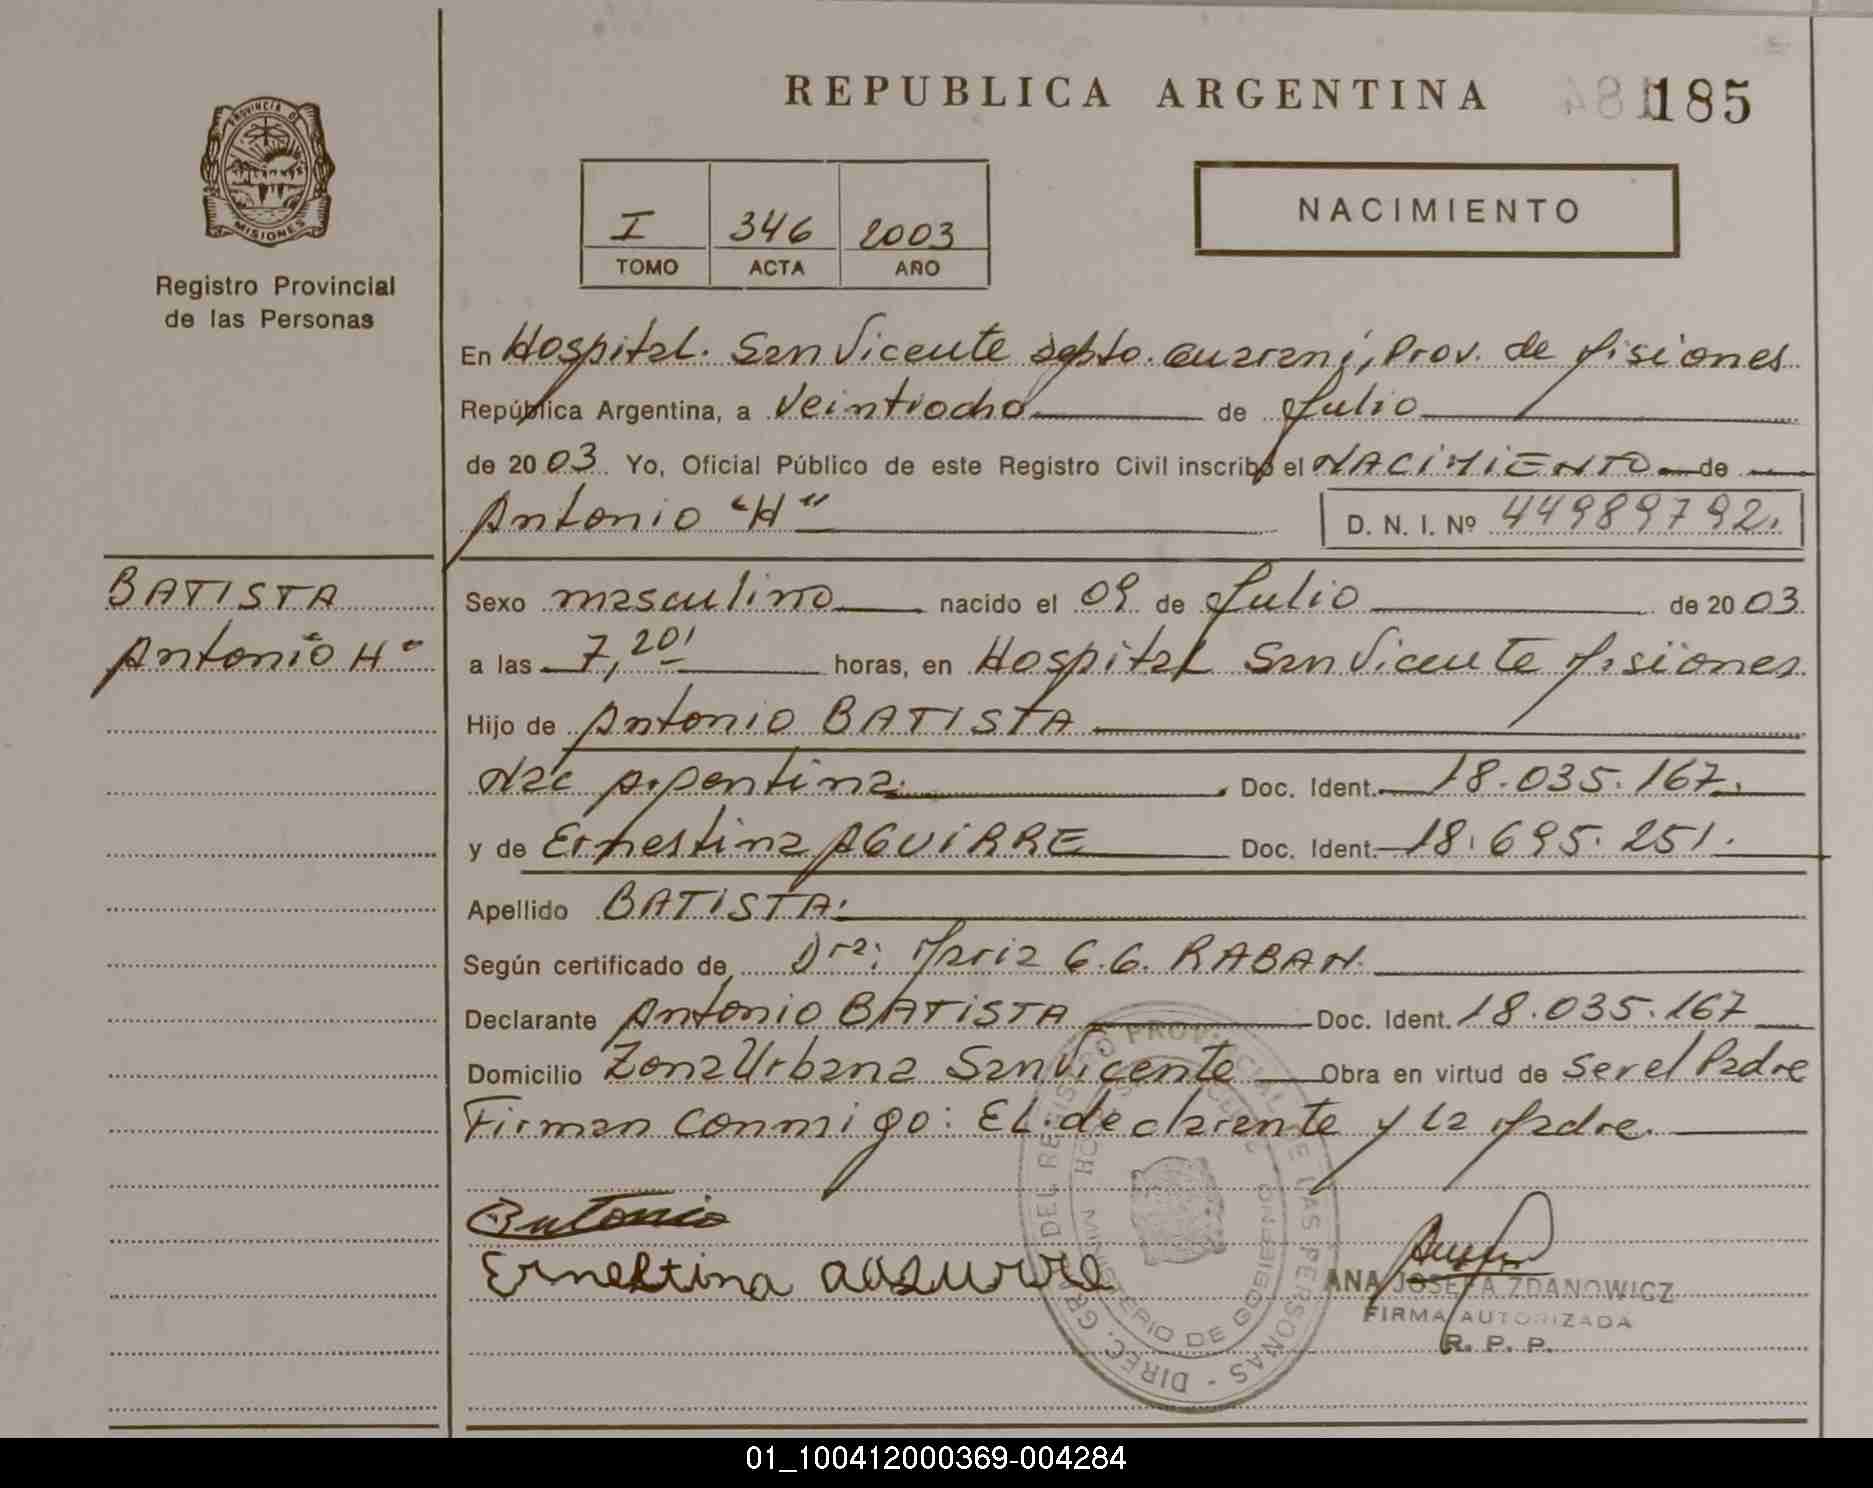 REPUBLICA ARGENTINA
185
PROVINCIA DE
MISIONES
Registro Provincial
de las Personas
I 346 2003
TOMO ACTA AÑO
NACIMIENTO
En Hospital. San Vicente dpto. Guarani, Prov. de Misiones
República Argentina, a Veintiocho de Julio
de 2003. Yo, Oficial Público de este Registro Civil inscribo el NACIMIENTO de
Antonio "H"
D. N. I. Nº 44989792.
BATISTA
Antonio "H"
Sexo masculino nacido el 09 de Julio de 2003
a las 7,20' horas, en Hospital San Vicente Misiones
Hijo de Antonio BATISTA
Nac Argentina. Doc. Ident. 18.035.167.
y de Ernestina AGUIRRE Doc. Ident. 18.695.251.
Apellido BATISTA.
Según certificado de Dra: Maria G.G. RABAN.
Declarante Antonio BATISTA Doc. Ident. 18.035.167
Domicilio Zona Urbana San Vicente Obra en virtud de Ser el Padre
Firman conmigo: El declarante y la Madre.
Antonio
Ernestina
ANA JOSEFA ZDANOWICZ
FIRMA AUTORIZADA
R. P. P.
DIREC. GRAL. DEL REGISTRO PROVINCIAL DE LAS PERSONAS -
MINISTERIO DE GOBIERNO
01_100412000369-004284